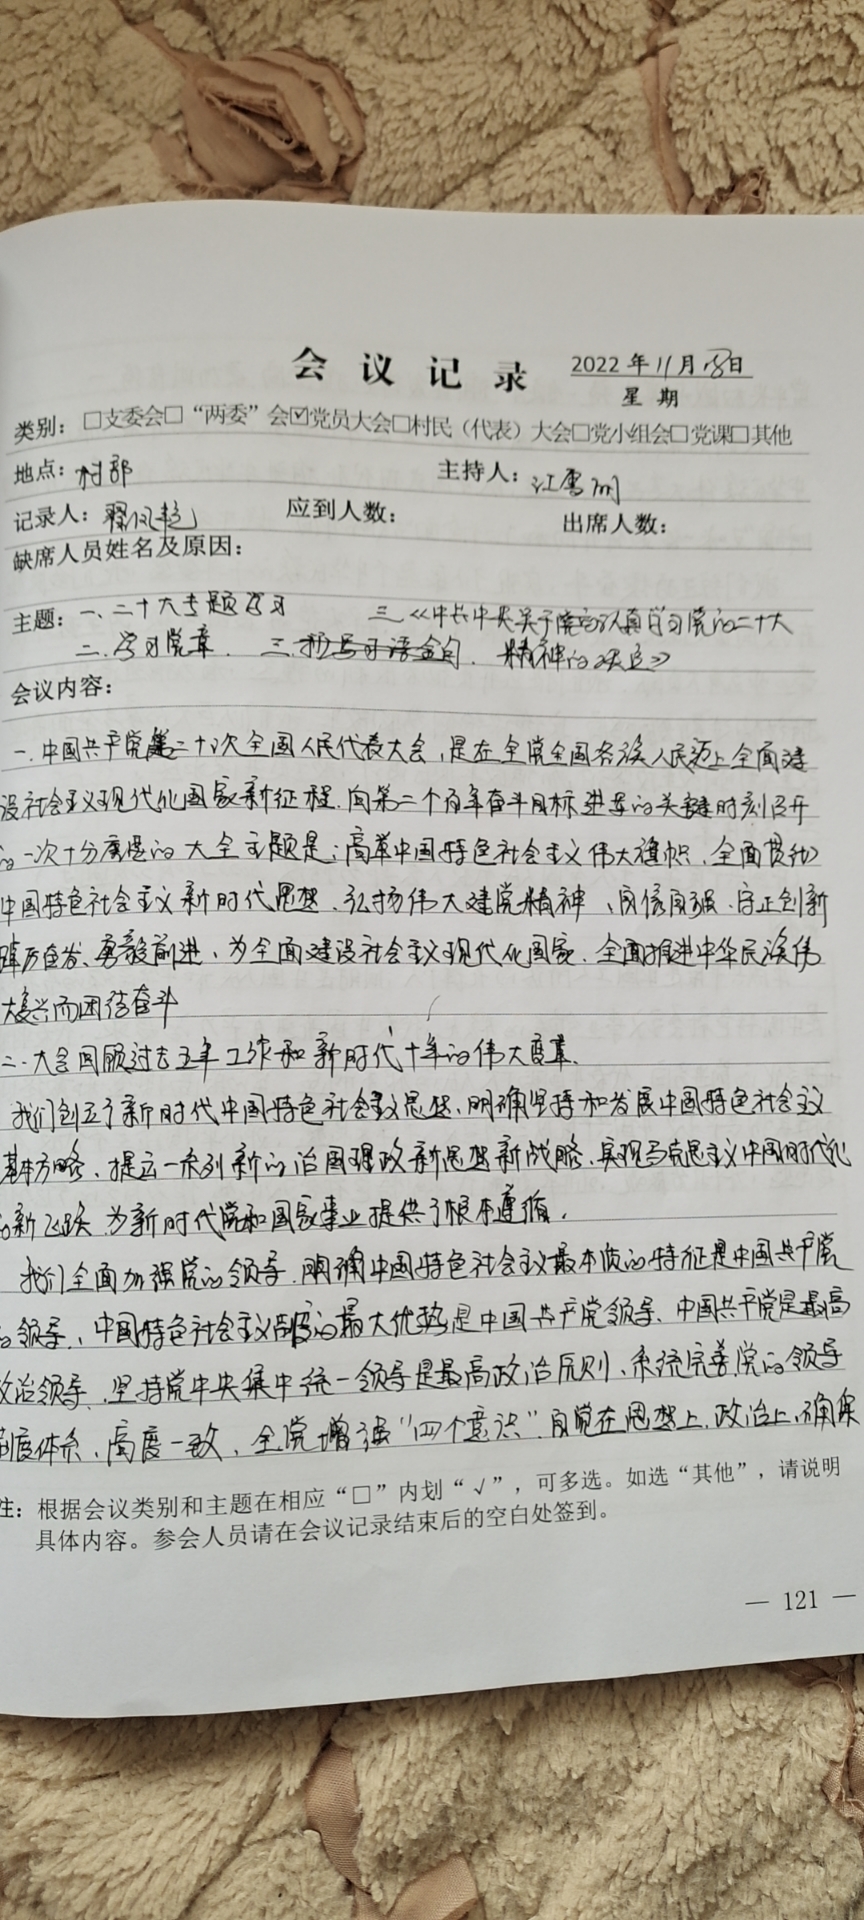 会 议 记 录 2022 年 11 月 18 日
星 期
类别：□支委会□“两委”会☑党员大会□村民（代表）大会□党小组会□党课□其他
地点：村部 主持人：江雪
记录人： 应到人数： 出席人数：
缺席人员姓名及原因：
主题：一、二十大专题学习 三《中共中央关于 认真学习党的二十大
二.学习党章. 三. 精神的决定》
会议内容：
一.中国共产党第二十次全国人民代表大会,是在全党全国各族人民迈上全面建
设社会主义现代化国家新征程.向第二个百年奋斗目标进军的关键时刻召开
的一次十分重要的大会主题是:高举中国特色社会主义伟大旗帜、全面贯彻
中国特色社会主义新时代思想、弘扬伟大建党精神、自信自强、守正创新
踔厉奋发、勇毅前进、为全面建设社会主义现代化国家、全面推进中华民族伟
大复兴而团结奋斗
二.大会回顾过去五年工作和新时代十年的伟大变革.
我们创立了新时代中国特色社会主义思想、明确坚持和发展中国特色社会主义
基本方略、提出一系列新的治国理政新思想新战略、实现马克思主义中国时代化
的新飞跃.为新时代党和国家事业提供了根本遵循.
我们全面加强党的领导.明确中国特色社会主义最本质的特征是中国共产党
的领导、中国特色社会主义制度的最大优势是中国共产党领导、中国共产党是最高
政治领导.坚持党中央集中统一领导是最高政治原则、系统完善党的领导
制度体系、高度一致、全党增强“四个意识”.自觉在思想上.政治上.确保
注：根据会议类别和主题在相应“□”内划“√”，可多选。如选“其他”，请说明
具体内容。参会人员请在会议记录结束后的空白处签到。
— 121 —